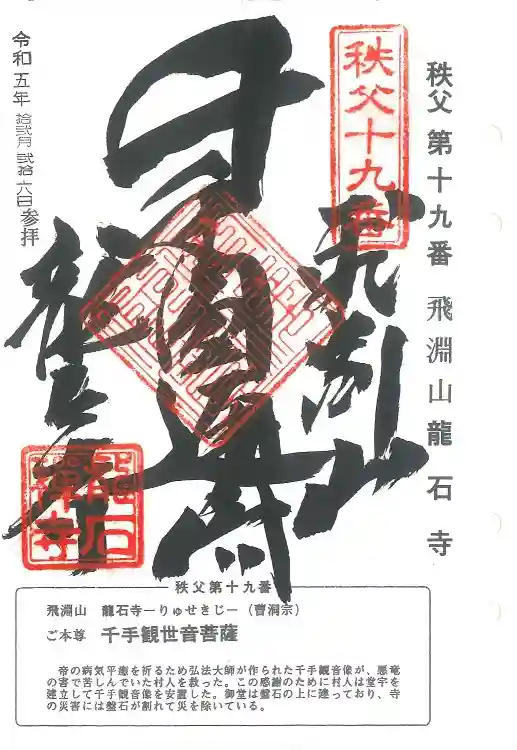 秩父第十九番 飛淵山龍石寺
秩父十九番
千
令和五年 拾弐月 弐拾六日参拝
龍石
禅寺
秩父第十九番
飛淵山 龍石寺ーりゅせきじー（曹洞宗）
ご本尊 千手観世音菩薩
帝の病気平癒を祈るため弘法大師が作られた千手観音像が、悪竜
の害で苦しんでいた村人を救った。この感謝のために村人は堂宇を
建立して千手観音像を安置した。御堂は盤石の上に建っており、寺
の災害には盤石が割れて災を除いている。